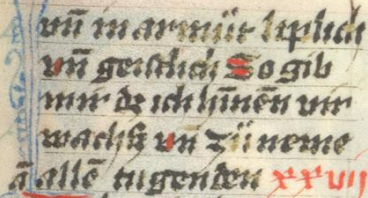 vn̄ in armůt liplich
vn̄ geistlich So gib
mir dz ich hīnen vür
wachs vn̄ zů neme
ā allē tugenden xxvii